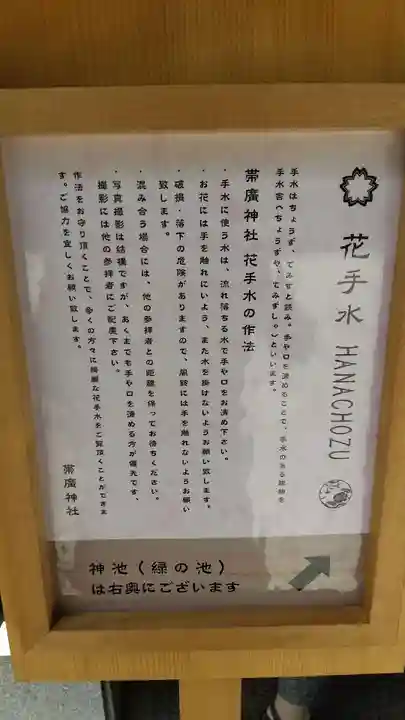 花手水 HANACHOZU
手水はちょうず、てみずと読み。手や口を清めることで、手水のある施設を
手水舎（ちょうずや、てみずしゃ）といいます。
帯廣神社 花手水の作法
・手水に使う水は、流れ落ちる水で手や口をお清め下さい。
・お花には手を触れにいよう、また水を掛けないようお願い致します。
・破損・落下の危険がありますので、風鈴には手を触れないようお願い
致します。
・混み合う場合には、他の参拝者との距離を保ってお待ちください。
・写真撮影は結構ですが、あくまでも手や口を清める方が優先です、
撮影には他の参拝者にご配慮下さい。
作法をお守り頂くことで、多くの方々に綺麗な花手水をご覧頂くことができま
す。ご協力を宜しくお願い致します。
帯廣神社
神池（緑の池）
は右奥にございます